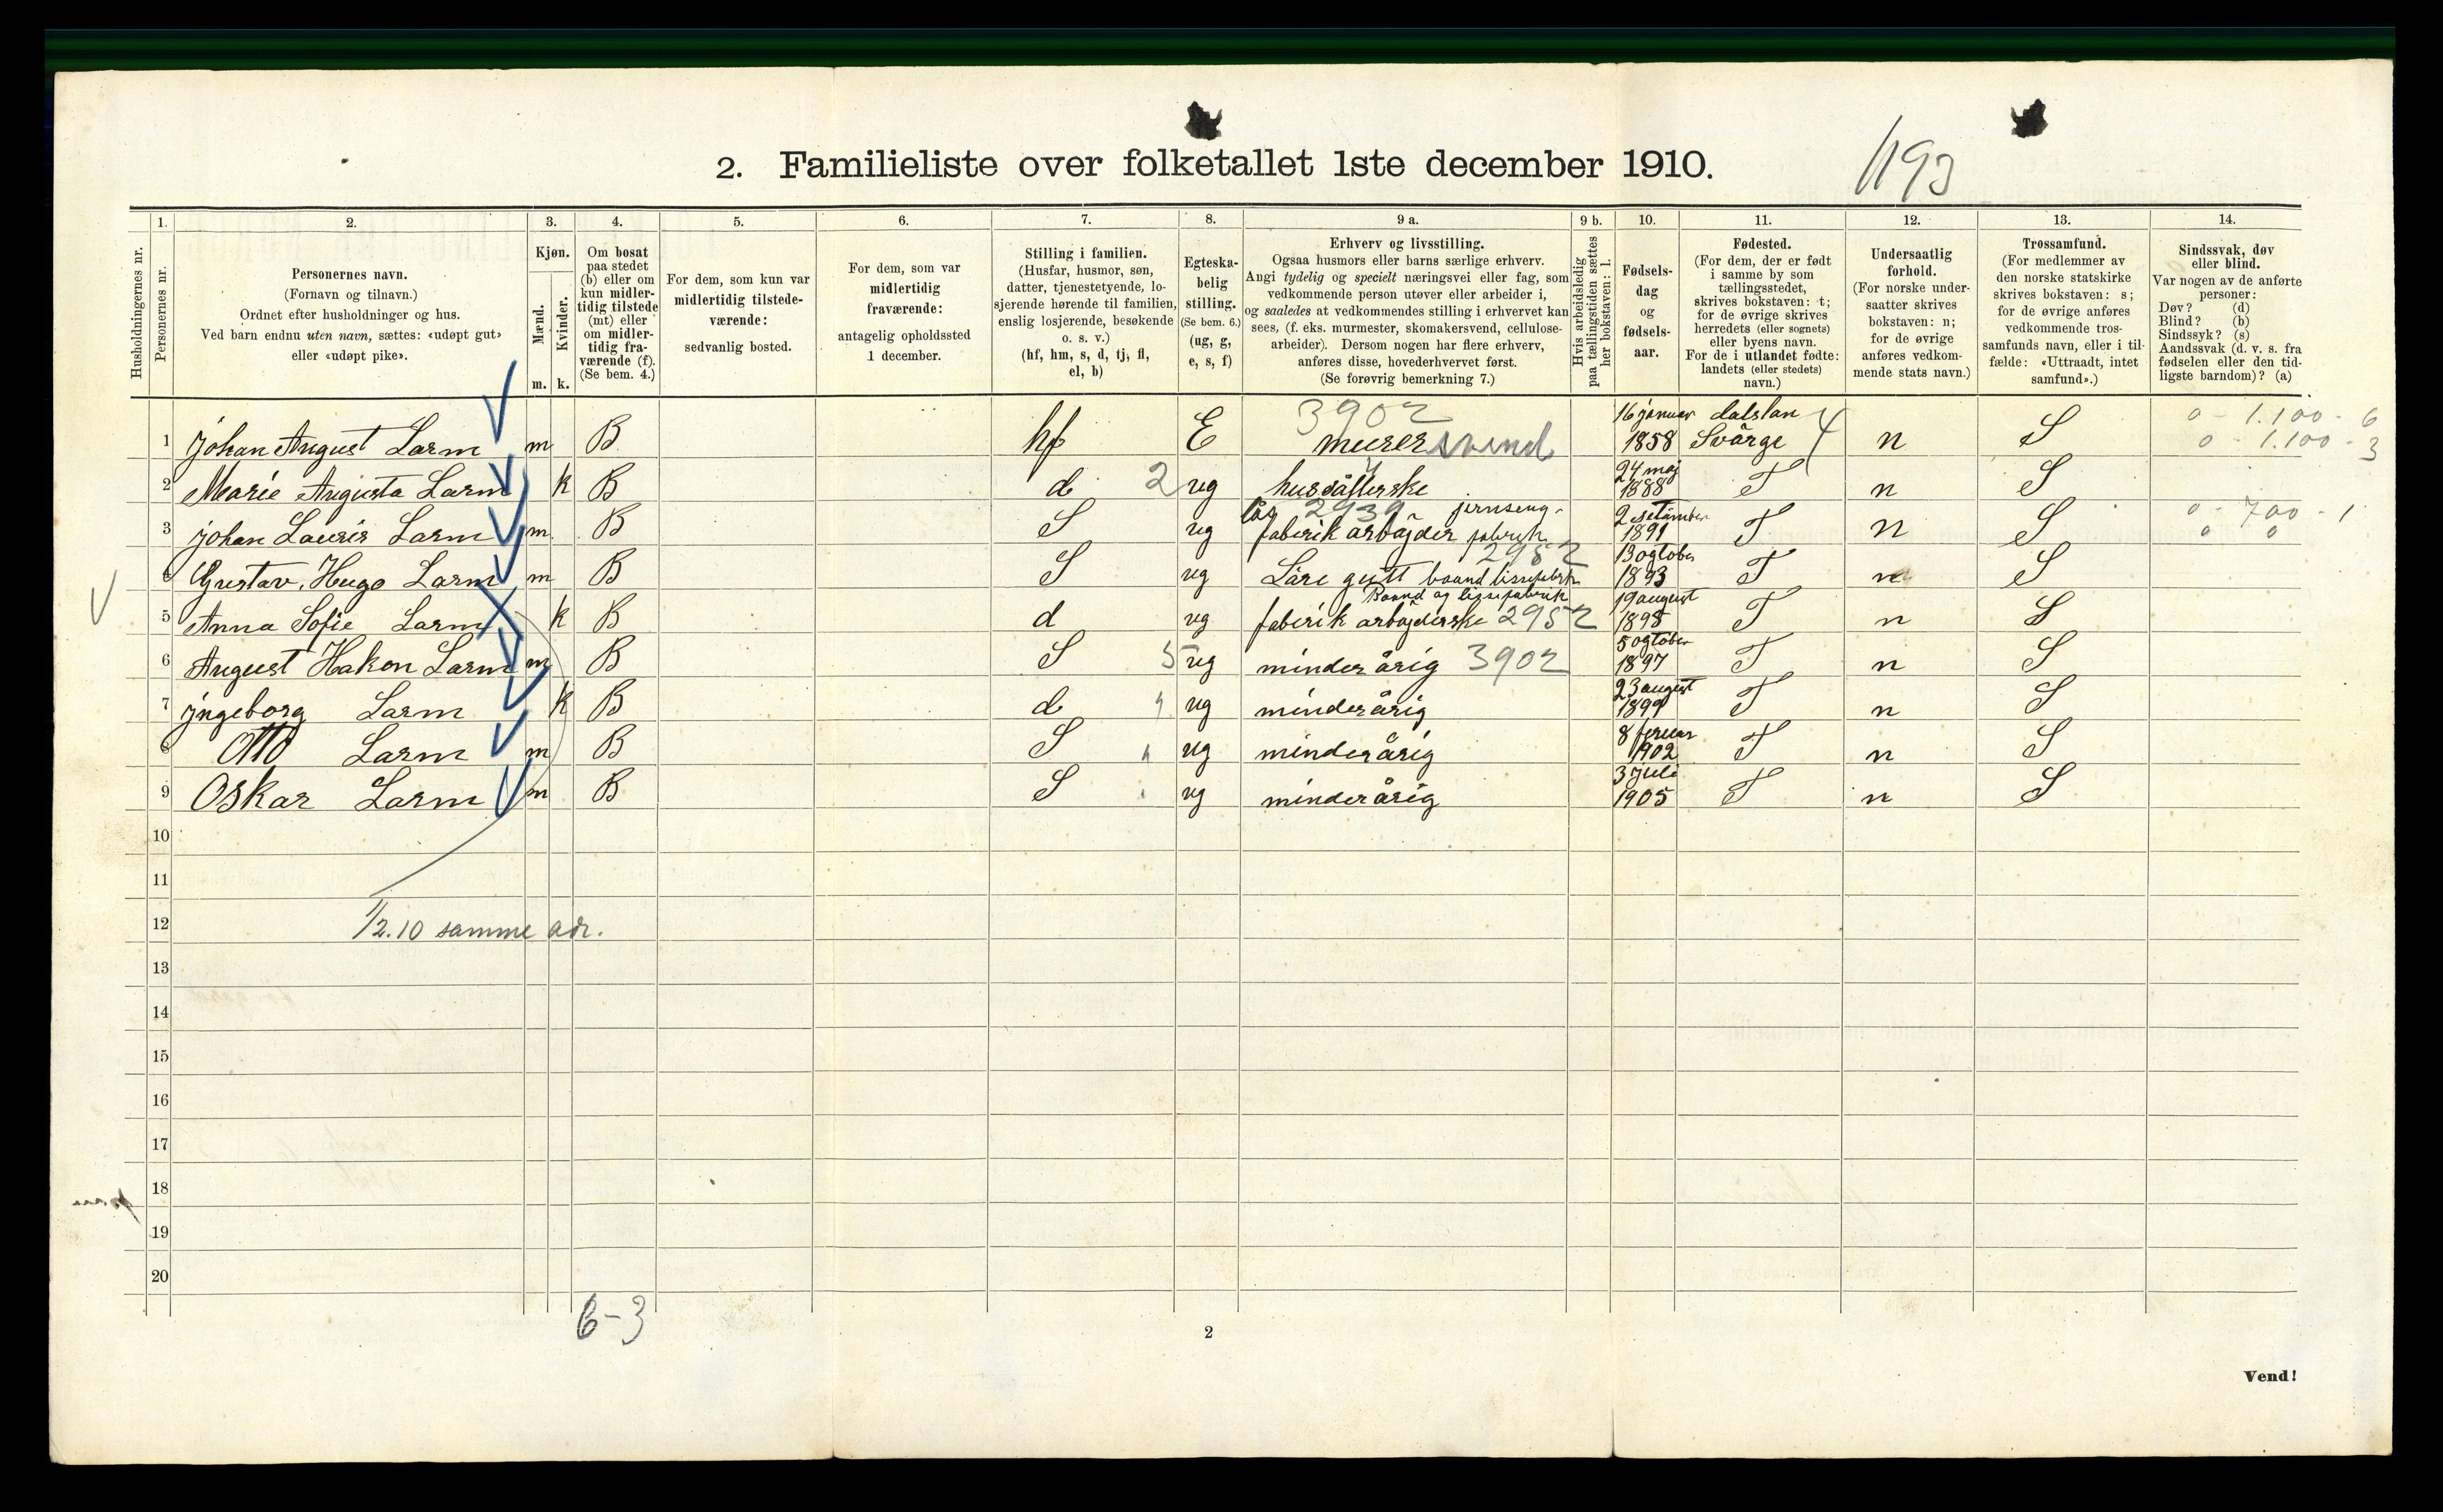 2. Familieliste over folketallet 1ste december 1910.
1193
Husholdningernes nr.
1.
Personernes nr.
2.
Personernes navn.
(Fornavn og tilnavn.)
Ordnet efter husholdninger og hus.
Ved barn endnu uten navn, sættes: «udøpt gut»
eller «udøpt pike».
3.
Kjøn.
Mænd.
Kvinder.
m. k.
4.
Om bosat
paa stedet
(b) eller om
kun midler-
tidig tilstede
(mt) eller
om midler-
tidig fra-
værende (f).
(Se bem. 4.)
5.
For dem, som kun var
midlertidig tilstede-
værende:
sedvanlig bosted.
6.
For dem, som var
midlertidig
fraværende:
antagelig opholdssted
1 december.
7.
Stilling i familien.
(Husfar, husmor, søn,
datter, tjenestetyende, lo-
sjerende hørende til familien,
enslig losjerende, besøkende
o. s. v.)
(hf, hm, s, d, tj, fl,
el, b)
8.
Egteska-
belig
stilling.
(Se bem. 6.)
(ug, g,
e, s, f)
9 a.
Erhverv og livsstilling.
Ogsaa husmors eller barns særlige erhverv.
Angi tydelig og specielt næringsvei eller fag, som
vedkommende person utøver eller arbeider i,
og saaledes at vedkommendes stilling i erhvervet kan
sees, (f. eks. murmester, skomakersvend, cellulose-
arbeider). Dersom nogen har flere erhverv,
anføres disse, hovederhvervet først.
(Se forøvrig bemerkning 7.)
9 b.
Hvis arbeidsledig
paa tællingstiden sættes
her bokstaven: l.
10.
Fødsels-
dag
og
fødsels-
aar.
11.
Fødested.
(For dem, der er født
i samme by som
tællingsstedet,
skrives bokstaven: t;
for de øvrige skrives
herredets (eller sognets)
eller byens navn.
For de i utlandet fødte:
landets (eller stedets)
navn.)
12.
Undersaatlig
forhold.
(For norske under-
saatter skrives
bokstaven: n;
for de øvrige
anføres vedkom-
mende stats navn.)
13.
Trossamfund.
(For medlemmer av
den norske statskirke
skrives bokstaven: s;
for de øvrige anføres
vedkommende tros-
samfunds navn, eller i til-
fælde: «Uttraadt, intet
samfund».)
14.
Sindssvak, døv
eller blind.
Var nogen av de anførte
personer:
Døv? (d)
Blind? (b)
Sindssyk? (s)
Aandssvak (d. v. s. fra
fødselen eller den tid-
ligste barndom)? (a)
3902 16 januar dalslan 0 - 1.100 - 6
1 johan August Larm m B hf E murersvend 1858 Svärge n S 0 - 1.100 - 3
24 maj
2 Marie Augusta Larm k B d 2 ug 1888 T n S
2939 jernseng-
3 johan Lauris Larm m B S ug faberik arbøjder fabrik 1891 T n S 0 - 700 - 1
0 0
2952 13 ogtober
Gustav Hugo Larm m B S ug Läre gutt 1893 T n S
Baand og lissefabrik 19 august
5 Anna Sofie Larm k B d ug faberik arbøjderske 2952 1895 T n S
5 ogtober
6 August Hakon Larm m B S 5 ug minderårig 3902 1897 T n S
23 august
7 jngeborg Larm k B d ug minderårig 1899 T n S
8 feruar
Otto Larm m B S ug minderårig 1902 T n S
3 juli
9 Oskar Larm m B S ug minderårig 1905 T n S
10
11
12 1/2.10 samme adr.
13
14
15
16
17
18
19
20
6-3
2
Vend!